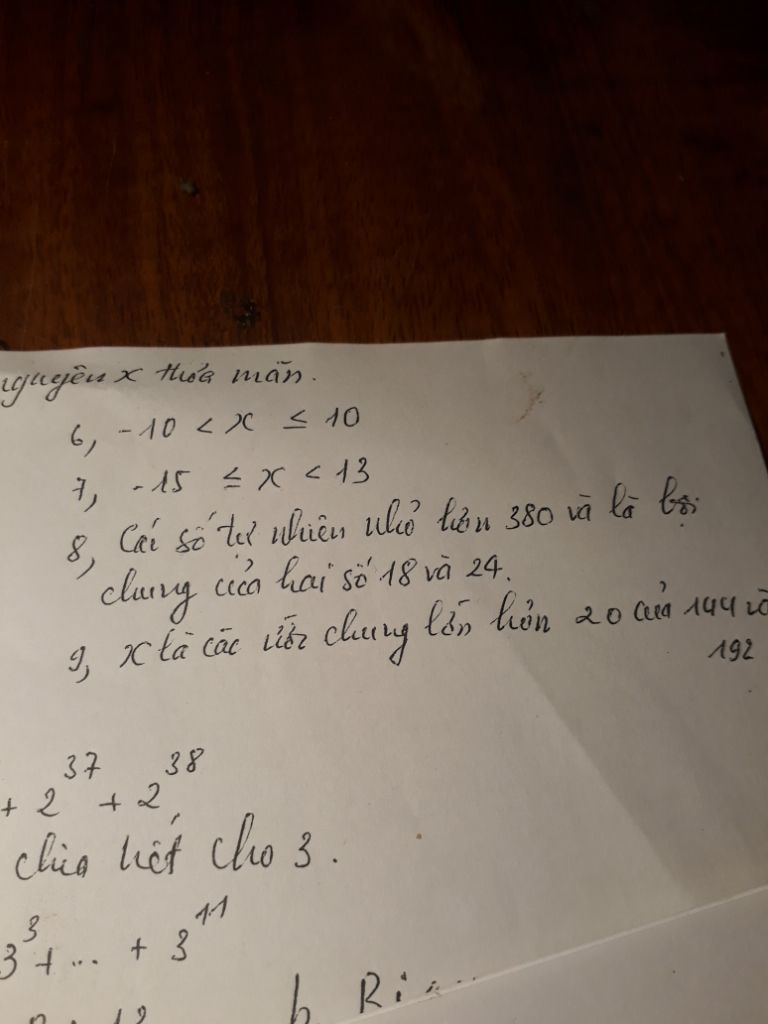 nguyên x thỏa mãn.
6, -10 < x ≤ 10
7, -15 ≤ x < 13
8, Các số tự nhiên nhỏ hơn 380 và là bội
chung của hai số 18 và 24.
9, x là các ước chung lớn hơn 20 của 144 và
192
+ 2^37 + 2^38
chia hết cho 3.
3^3 + ... + 3^11
b